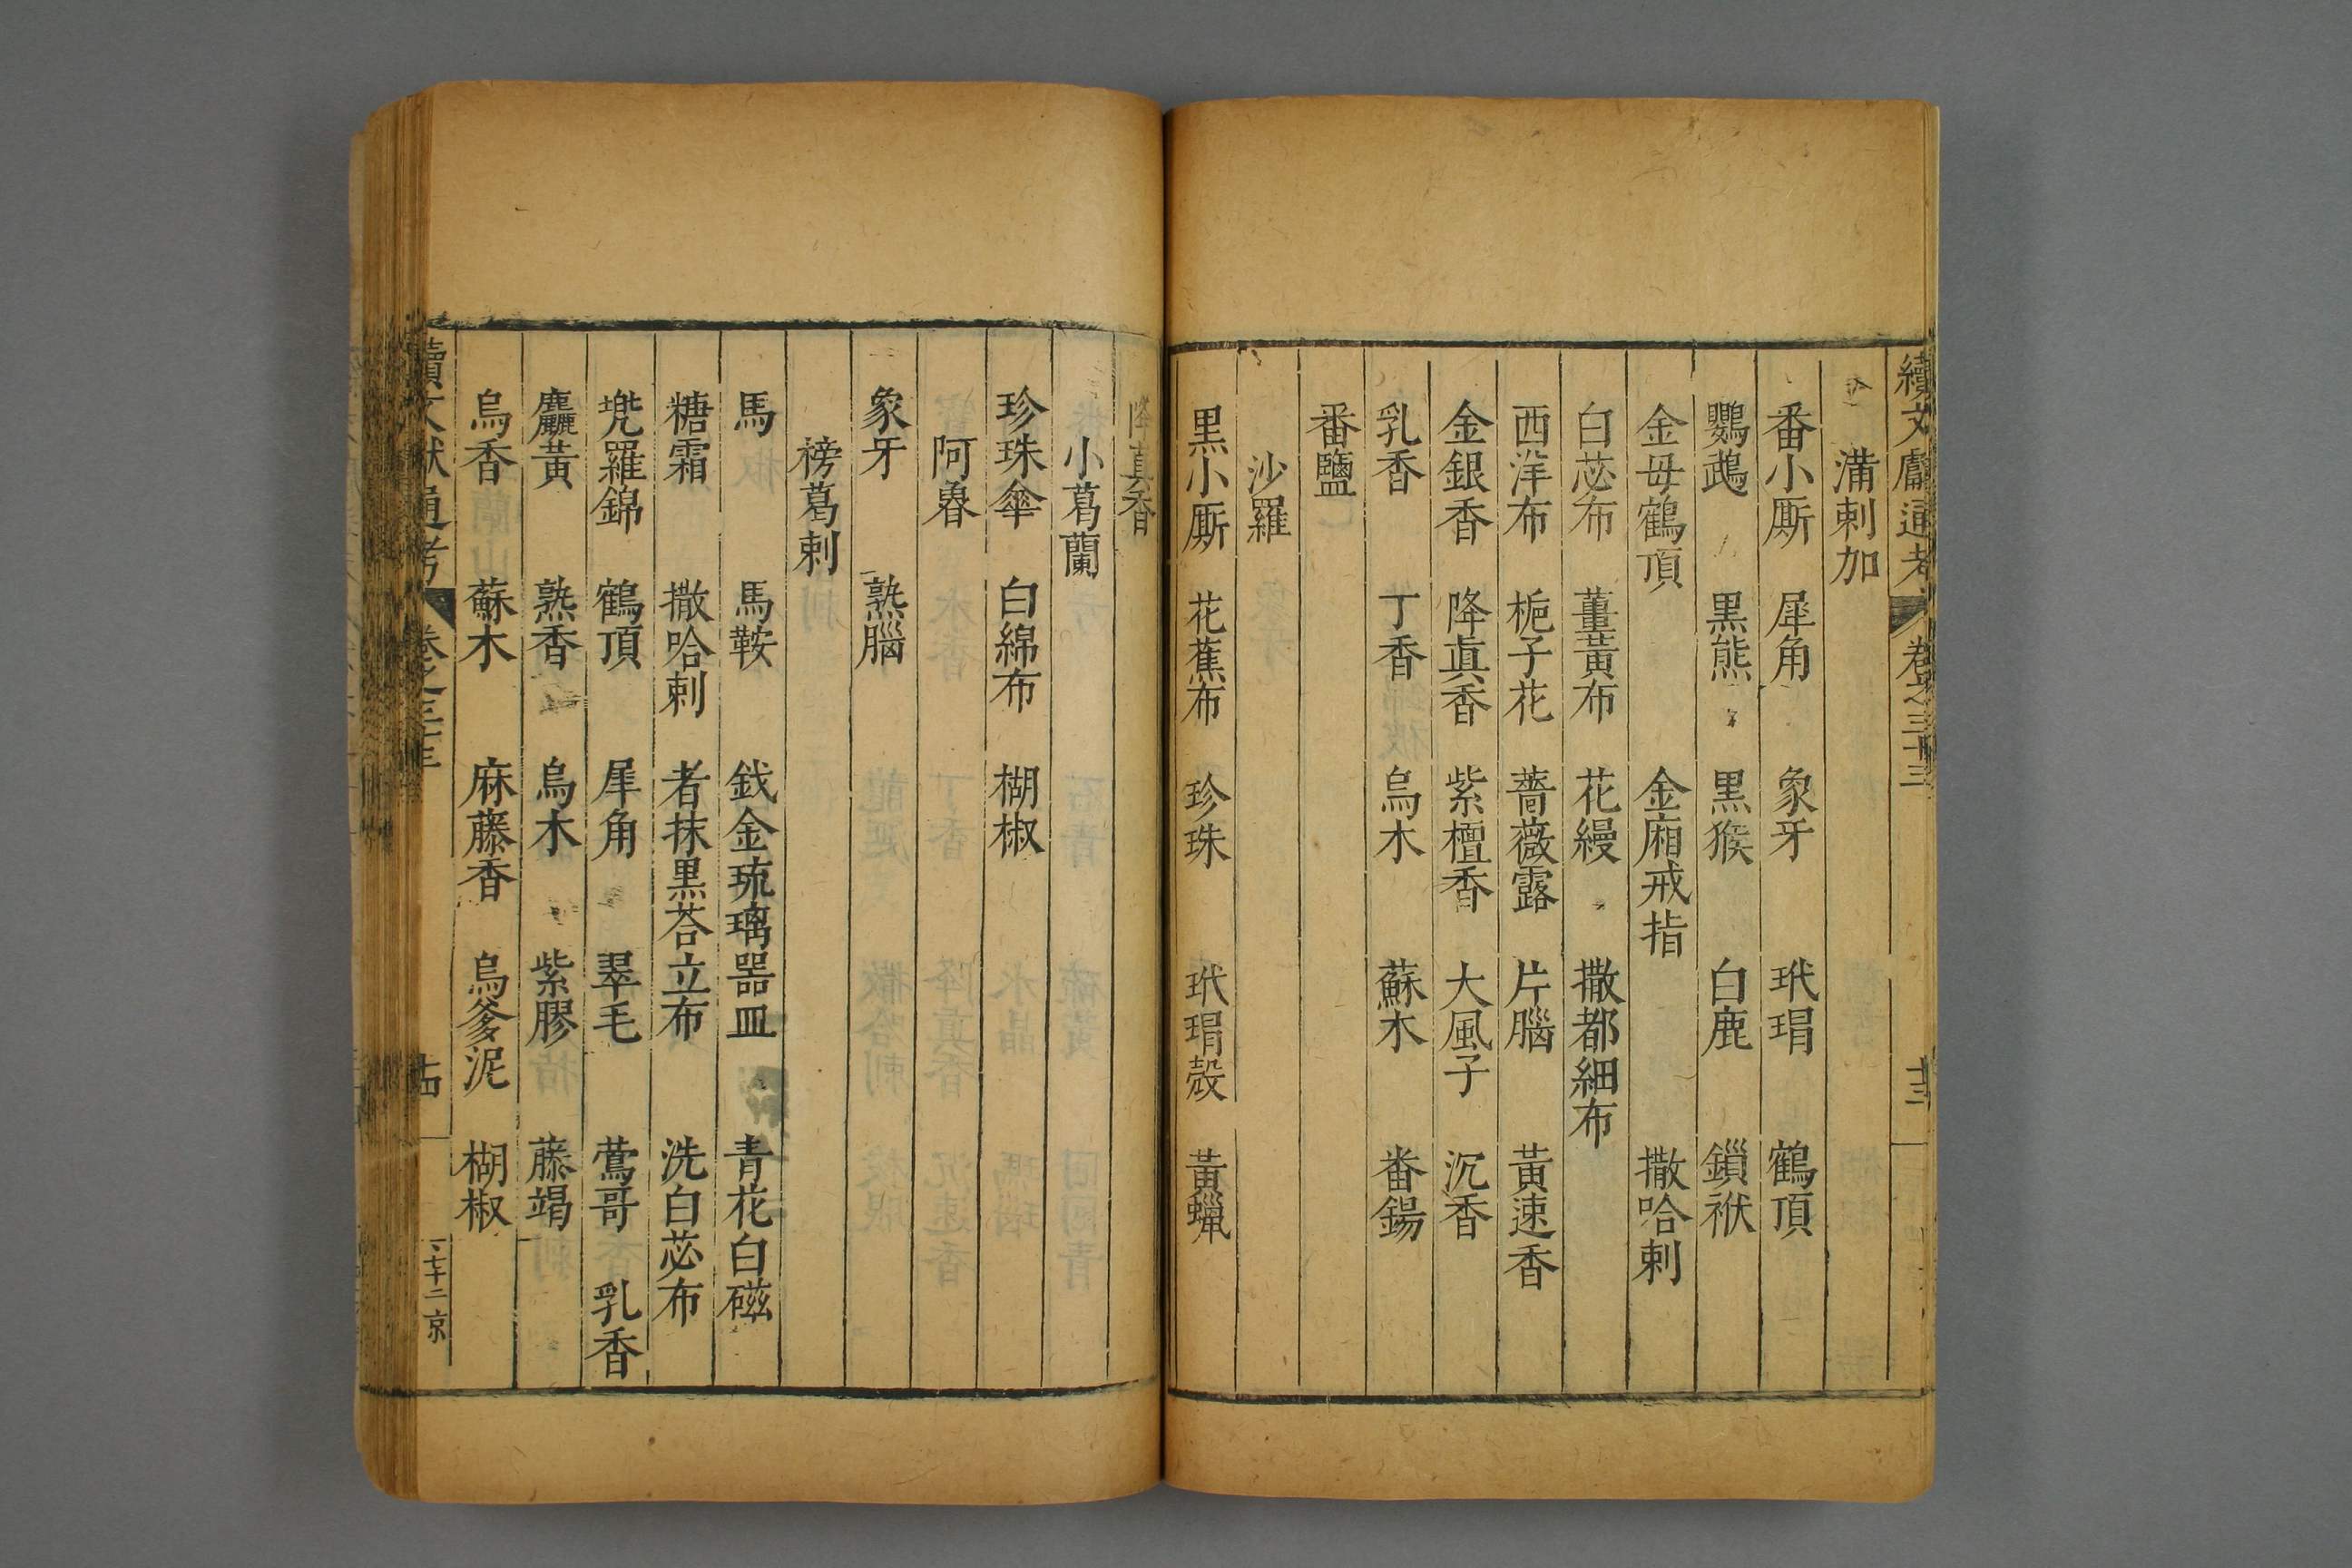 續文獻通考 卷之三十三 十三
滿剌加
番小厮 犀角 象牙 玳瑁 鶴頂
鸚鵡 黑熊 黑猴 白鹿 鎖袱
金母鶴頂 金廂戒指 撒哈剌
白苾布 薑黃布 花縵 撒都細布
西洋布 梔子花 薔薇露 片腦 黃速香
金銀香 降眞香 紫檀香 大風子 沉香
乳香 丁香 烏木 蘇木 番錫
番鹽
沙羅
黑小厮 花蕉布 珍珠 玳瑁殼 黃蠟
降真香
小葛蘭
珍珠傘 白綿布 楜椒
阿魯
象牙 熟腦
榜葛剌
馬 馬鞍 戧金琉璃器皿 青花白磁
糖霜 撒哈剌 者抹黑荅立布 洗白苾布
兠羅錦 鶴頂 犀角 翠毛 鶯哥 乳香
麤黃 熟香 烏木 紫膠 藤竭
烏香 蘇木 麻藤香 烏爹泥 楜椒
續文獻通考 卷之三十三 十四 七十二 京